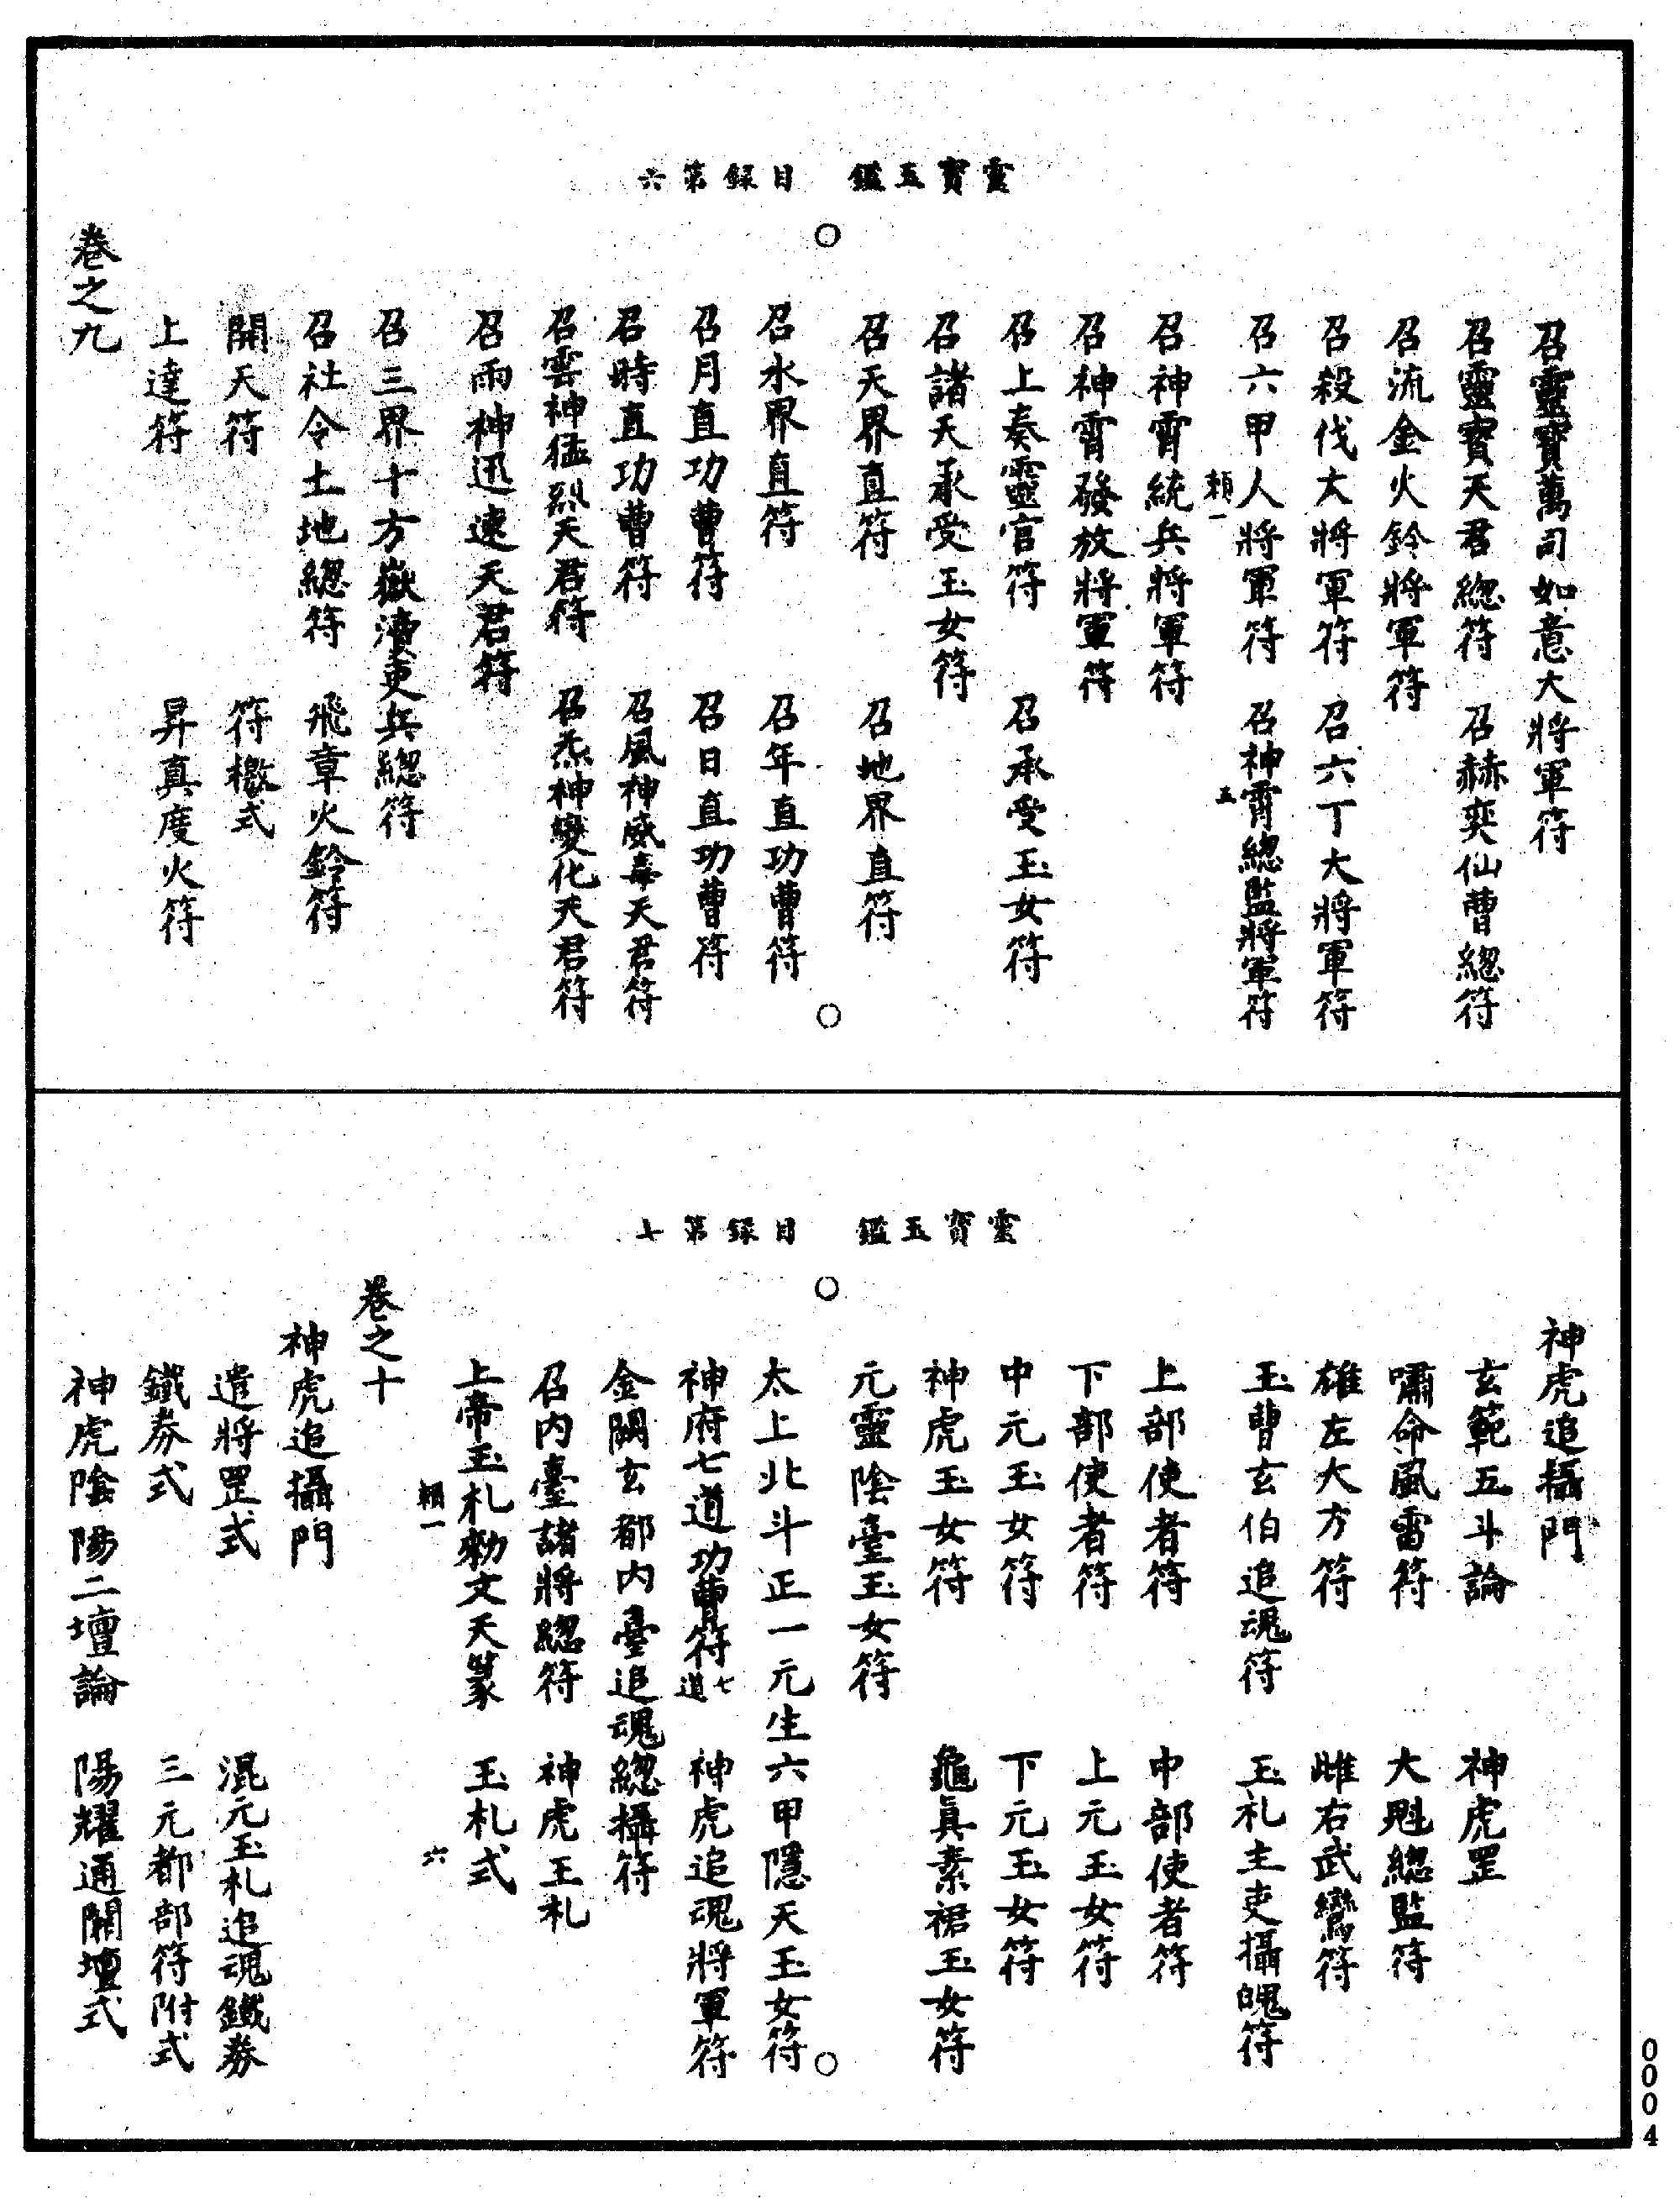 靈寶玉鑑　目録第六
召靈寶萬司如意大將軍符
召靈寶天君總符　召赫奕仙曹總符
召流金火鈴將軍符
召殺伐大將軍符　召六丁大將軍符
召六甲人將軍符　召神霄總監將軍符
頼一　五
召神霄統兵將軍符
召神霄發放將軍符
召上奏靈官符　召承受玉女符
召諸天承受玉女符
召天界直符　召地界直符
召水界直符　召年直功曹符
召月直功曹符　召日直功曹符
召時直功曹符　召風神威毒天君符
召雲神猛烈天君符　召炁神變化天君符
召雨神迅速天君符
召三界十方嶽瀆吏兵總符
召社令土地總符　飛章火鈴符
開天符　符檄式
上達符　昇真度火符
卷之九
靈寶玉鑑　目録第七
神虎追攝門
玄範五斗論　神虎罡
嘯命風雷符　大魁總監符
雄左大方符　雌右武鸞符
玉曹玄伯追魂符　玉札主吏攝魄符
上部使者符　中部使者符
下部使者符　上元玉女符
中元玉女符　下元玉女符
神虎玉女符　龜真素裙玉女符
元靈陰臺玉女符
太上北斗正一元生六甲隱天玉女符
神府七道功曹符七道　神虎追魂將軍符
金闕玄都內臺追魂總攝符
召內臺諸將總符　神虎玉札
上帝玉札勑文天篆　玉札式
頼一　六
卷之十
神虎追攝門
遣將罡式　混元玉札追魂鐵券
鐵券式　三元都部符附式
神虎陰陽二壇論　陽耀通關壇式
0004